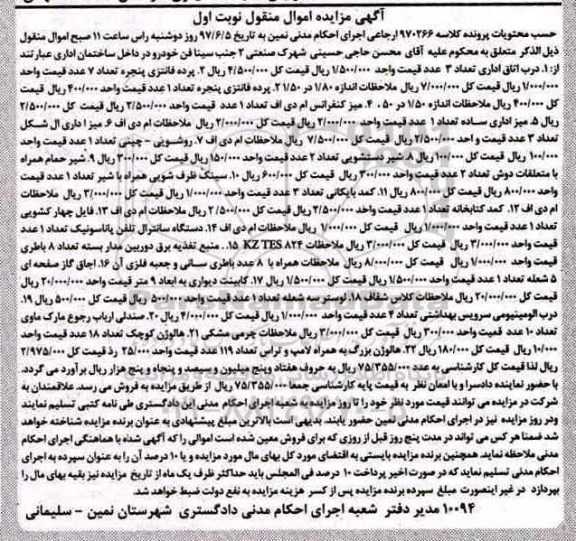 آگهی مزایده اموال منقول نوبت اول
حسب محتویات پرونده کلاسه ۹۷۰۲۶۶ ارجاعی اجرای احکام مدنی نمین به تاریخ ۹۷/۶/۵ روز دوشنبه راس ساعت ۱۱ صبح اموال منقول
ذیل الذکر متعلق به محکوم علیه آقای محسن حاجی حسینی شهرک صنعتی ۲ جنب سینا فن خودرو در داخل ساختمان اداری عبارتند
از: ۱. درب اتاق اداری تعداد ۳ عدد قیمت واحد ۱/۵۰۰/۰۰۰ ریال قیمت کل ۴/۵۰۰/۰۰۰ ریال ۲. پرده فانتزی پنجره تعداد ۷ عدد قیمت واحد
۱/۰۰۰/۰۰۰ ریال قیمت کل ۷/۰۰۰/۰۰۰ ریال ملاحظات اندازه ۱/۸۰ در ۱/۵۰ ۳. پرده فانتزی پنجره تعداد ۱ عدد قیمت واحد ۴۰۰/۰۰۰ ریال قیمت
کل ۴۰۰/۰۰۰ ریال ملاحظات اندازه ۱/۵۰ در ۵۰ . ۴. میز کنفرانس ام دی اف تعداد ۱ عدد قیمت واحد ۲/۵۰۰/۰۰۰ ریال قیمت کل ۲/۵۰۰/۰۰۰
ریال ۵. میز اداری ساده تعداد ۱ عدد قیمت واحد ۲/۰۰۰/۰۰۰ ریال قیمت کل ۲/۰۰۰/۰۰۰ ریال ملاحظات ام دی اف ۶. میز اداری ال شکل
تعداد ۳ عدد قیمت و احد ۲/۵۰۰/۰۰۰ ریال قیمت کل ۷/۵۰۰/۰۰۰ ریال ملاحظات ام دی اف ۷. روشویی - چینی تعداد ۱ عدد قیمت واحد
۱۰۰/۰۰۰ ریال قیمت کل ۱۰۰/۰۰۰ ریال ۸. شیر دستشویی تعداد ۲ عدد قیمت واحد ۱۵۰/۰۰۰ ریال قیمت کل ۳۰۰/۰۰۰ ریال ۹. شیر حمام همراه
با متعلقات دوش تعداد ۲ عدد قیمت واحد ۳۰۰/۰۰۰ ریال قیمت کل ۶۰۰/۰۰۰ ریال ۱۰. سینک ظرف شویی همراه با شیر تعداد ۱ عدد قیمت
واحد ۸۰۰/۰۰۰ ریال قیمت کل ۸۰۰/۰۰۰ ریال ۱۱. کمد بایگانی تعداد ۳ عدد قیمت واحد ۱/۰۰۰/۰۰۰ ریال قیمت کل ۳/۰۰۰/۰۰۰ ریال ملاحظات
ام دی اف ۱۲. کمد کتابخانه تعداد ۱ عدد قیمت واحد ۲/۵۰۰/۰۰۰ ریال قیمت کل ۲/۵۰۰/۰۰۰ ریال ملاحظات ام دی اف ۱۳. فایل چهار کشویی
تعداد ۱ عدد قیمت واحد ۱/۰۰۰/۰۰۰ ریال قیمت کل ۱/۰۰۰/۰۰۰ ریال ملاحظات ام دی اف ۱۴. دستگاه سانترال تلفن پاناسونیک تعداد ۱ عدد
قیمت واحد ۳/۰۰۰/۰۰۰ ریال قیمت کل ۳/۰۰۰/۰۰۰ ریال ملاحظات KZ TES ۸۲۴ ۱۵. منبع تغذیه برق دوربین مدار بسته تعداد ۸ باطری
قیمت واحد ۱/۰۰۰/۰۰۰ ریال قیمت کل ۸/۰۰۰/۰۰۰ ریال ملاحظات همراه با ۸ عدد باطری سانی و جعبه فلزی آن ۱۶. اجاق گاز صفحه ای
۵ شعله تعداد ۱ عدد قیمت واحد ۱/۵۰۰/۰۰۰ ریال قیمت کل ۱/۵۰۰/۰۰۰ ریال ۱۷. کابینت دیواری به ابعاد ۹ متر قیمت واحد ۲۰/۰۰۰/۰۰۰ ریال
قیمت کل ۲۰/۰۰۰/۰۰۰ ریال ملاحظات کلاس شفاف ۱۸. لوستر سه شعله تعداد ۱ عدد قیمت واحد ۵۰۰/۰۰۰ ریال قیمت کل ۵۰۰/۰۰۰ ریال ۱۹.
درب آلومینیومی سرویس بهداشتی تعداد ۴ عدد قیمت واحد ۱/۰۰۰/۰۰۰ ریال قیمت کل ۴/۰۰۰/۰۰۰ ریال ۲۰. صندلی ارباب رجوع مارک ماوی
تعداد ۱۰ عدد قمیت واحد ۳۰۰/۰۰۰ ریال قیمت کل ۳/۰۰۰/۰۰۰ ریال ملاحظات چرمی مشکی ۲۱. هالوژن کوچک تعداد ۱۸ عدد قیمت واحد
۱۰/۰۰۰ ریال قیمت کل ۱۸۰/۰۰۰ ریال ۲۲. هالوژن بزرگ به همراه لامپ و تراس تعداد ۱۱۹ عدد قیمت واحد ۲۵/۰۰۰ رذ قیمت کل ۲/۹۷۵/۰۰۰
ریال لذا قیمت کل کارشناسی به عدد ۷۵/۳۵۵/۰۰۰ ریال به حروف هفتاد وپنج میلیون و سیصد و پنجاه و پنج هزار ریال برآورد می گردد.
با حضور نماینده دادسرا و با امعان نظر به قیمت پایه کارشناسی جمعا ۷۵/۳۵۵/۰۰۰ ریال از طریق مزایده به فروش می رسد. علاقمندان به
شرکت در مزایده می توانند قیمت مورد نظر خود را تا روز مزایده به شعبه اجرای احکام مدنی این دادگستری طی نامه کتبی تسلیم نمایند
ودر روز مزایده نیز در اجرای احکام مدنی نمین حضور یابند. بدیهی است بالاترین مبلغ پیشنهادی به عنوان برنده مزایده شناخته خواهد
شد ضمنا هر کس می تواند در مدت پنج روز قبل از روزی که برای فروش معین شده است اموالی را که آگهی شده با هماهنگی اجرای احکام
مدنی ملاحظه نماید. همچنین برنده مزایده بایستی به اقتضای مورد کل بهای مال مورد مزایده و یا ۱۰ درصد آن را به عنوان سپرده به اجرای
احکام مدنی تسلیم نماید که در صورت اخیر پرداخت ۱۰ درصد فی المجلس باید حداکثر ظرف یک ماه از تاریخ مزایده نیز بقیه بهای مال را
بپردازد در غیر اینصورت مبلغ سپرده برنده مزایده پس از کسر هزینه مزایده به نفع دولت ضبط خواهد شد.
۱۰۰۹۴ مدیر دفتر شعبه اجرای احکام مدنی دادگستری شهرستان نمین - سلیمانی